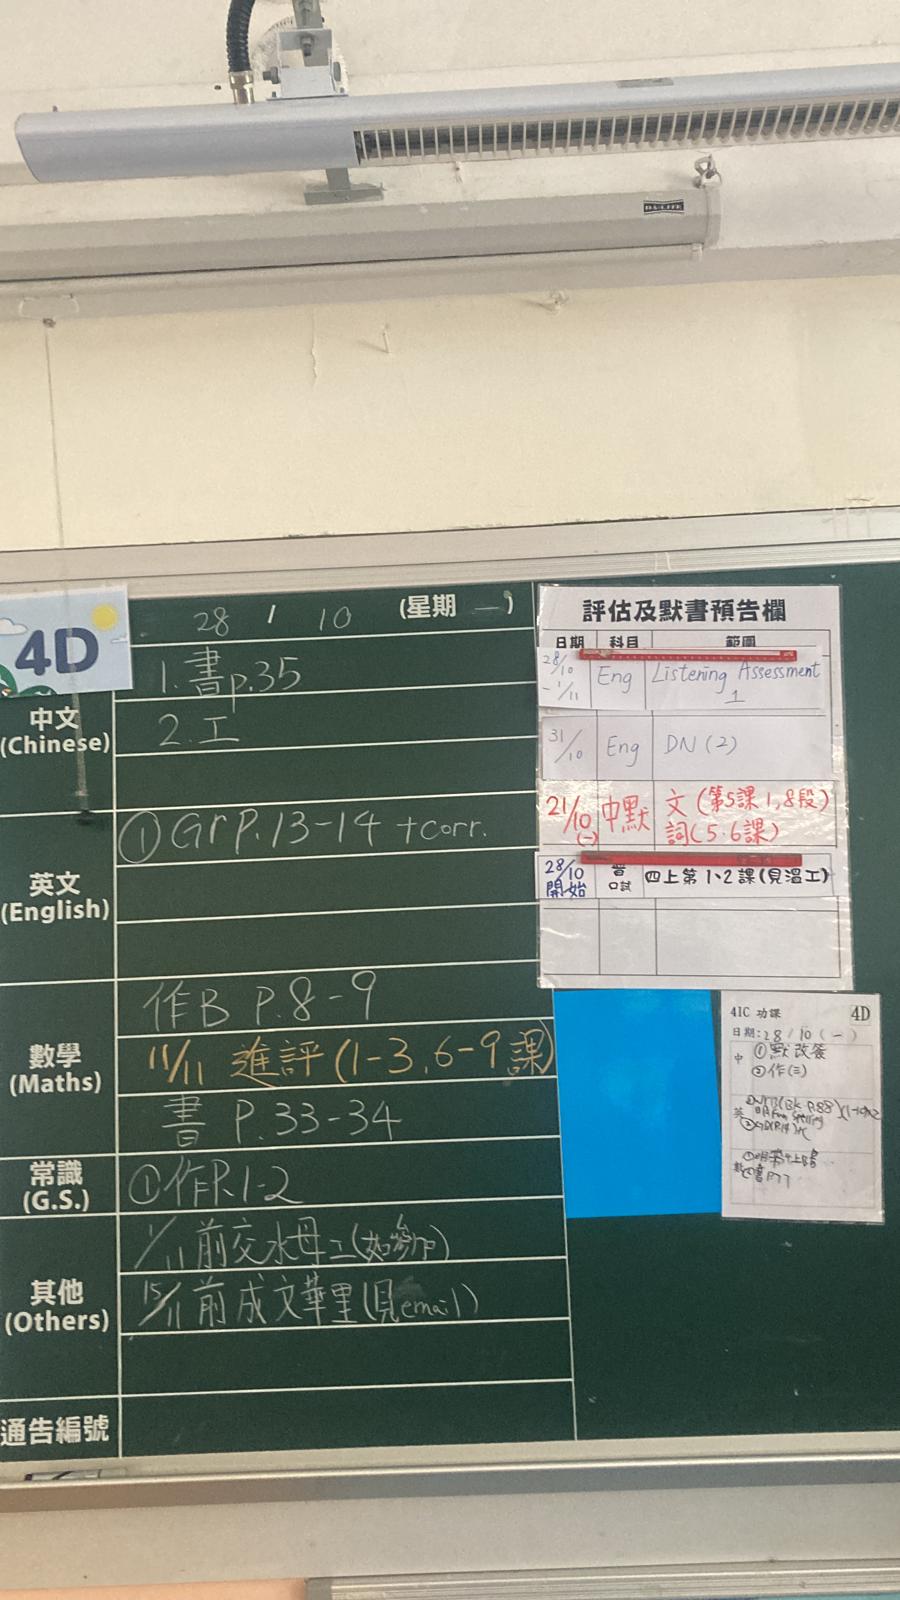 DA-LITE
4D
28 / 10 (星期 一)
中文
(Chinese)
1.書p.35
2.工
英文
(English)
① Gr P.13-14 +corr.
數學
(Maths)
作B P.8-9
11/11 進評(1-3,6-9課)
書 P.33-34
常識
(G.S.)
①作P.1-2
其他
(Others)
1/11前交水母工(如參加)
15/11前成文華里(見email)
通告編號
評估及默書預告欄
日期 科目 範圍
28/10 - 1/11 Eng Listening Assessment 1
31/10 Eng DN (2)
21/10 (一) 中默 文(第5課1,8段)
詞(5.6課)
28/10 開始 口試 四上第1、2課(見溫工)
41C 功課 4D
日期:28/10(一)
中 ①默改簽
②作(三)
英